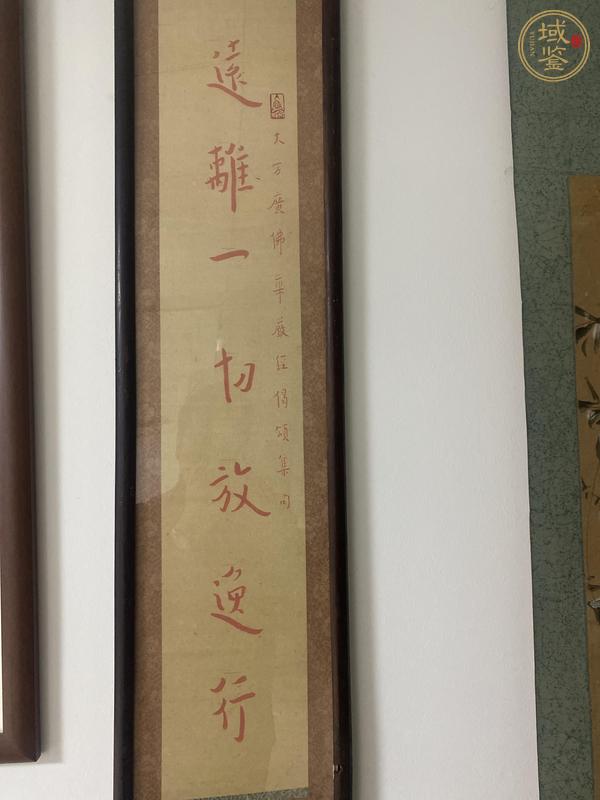 大方廣佛華嚴經偈頌集句
遠離一切放逸行
域鑒
YUJIAN